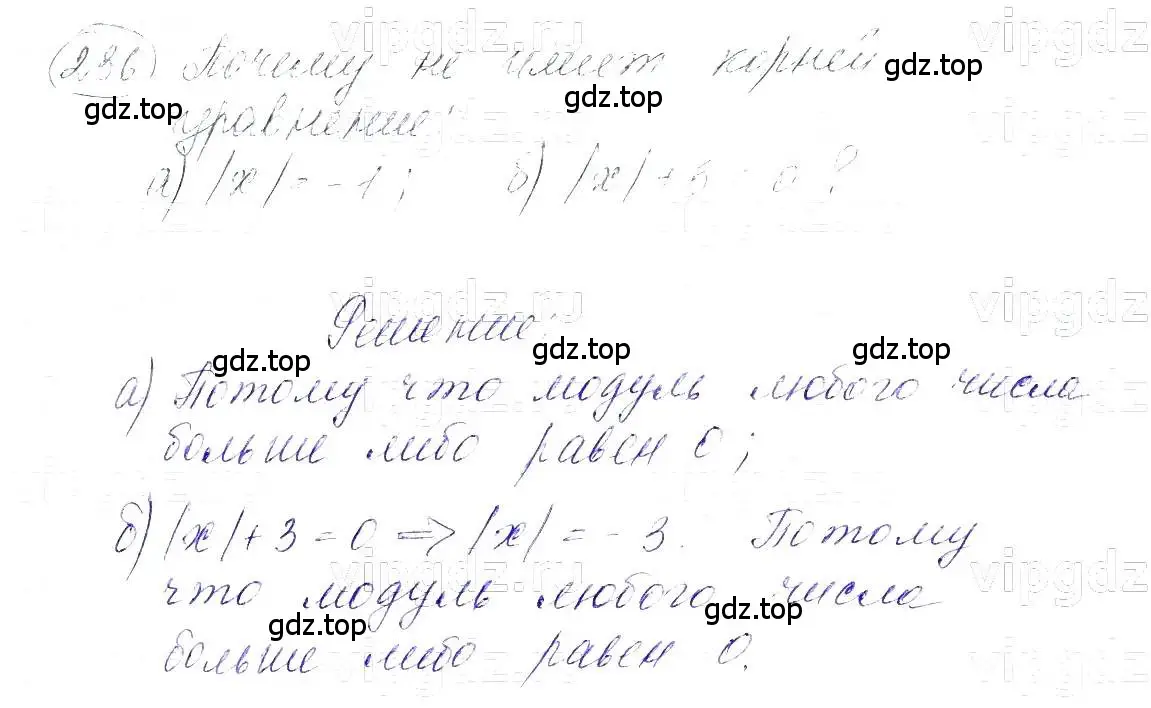 (236) Почему не имеет корней
уравнение:
а) |x| = -1; б) |x| + 3 = 0?
Решение:
а) Потому что модуль любого числа
больше либо равен 0;
б) |x| + 3 = 0 => |x| = -3. Потому
что модуль любого числа
больше либо равен 0.
gdz.top
gdz.top
gdz.top
gdz.top
gdz.top
gdz.top
gdz.top
gdz.top
vipgdz.ru
vipgdz
vipgdz.ru
vipgdz
vipgdz.ru
vipgdz